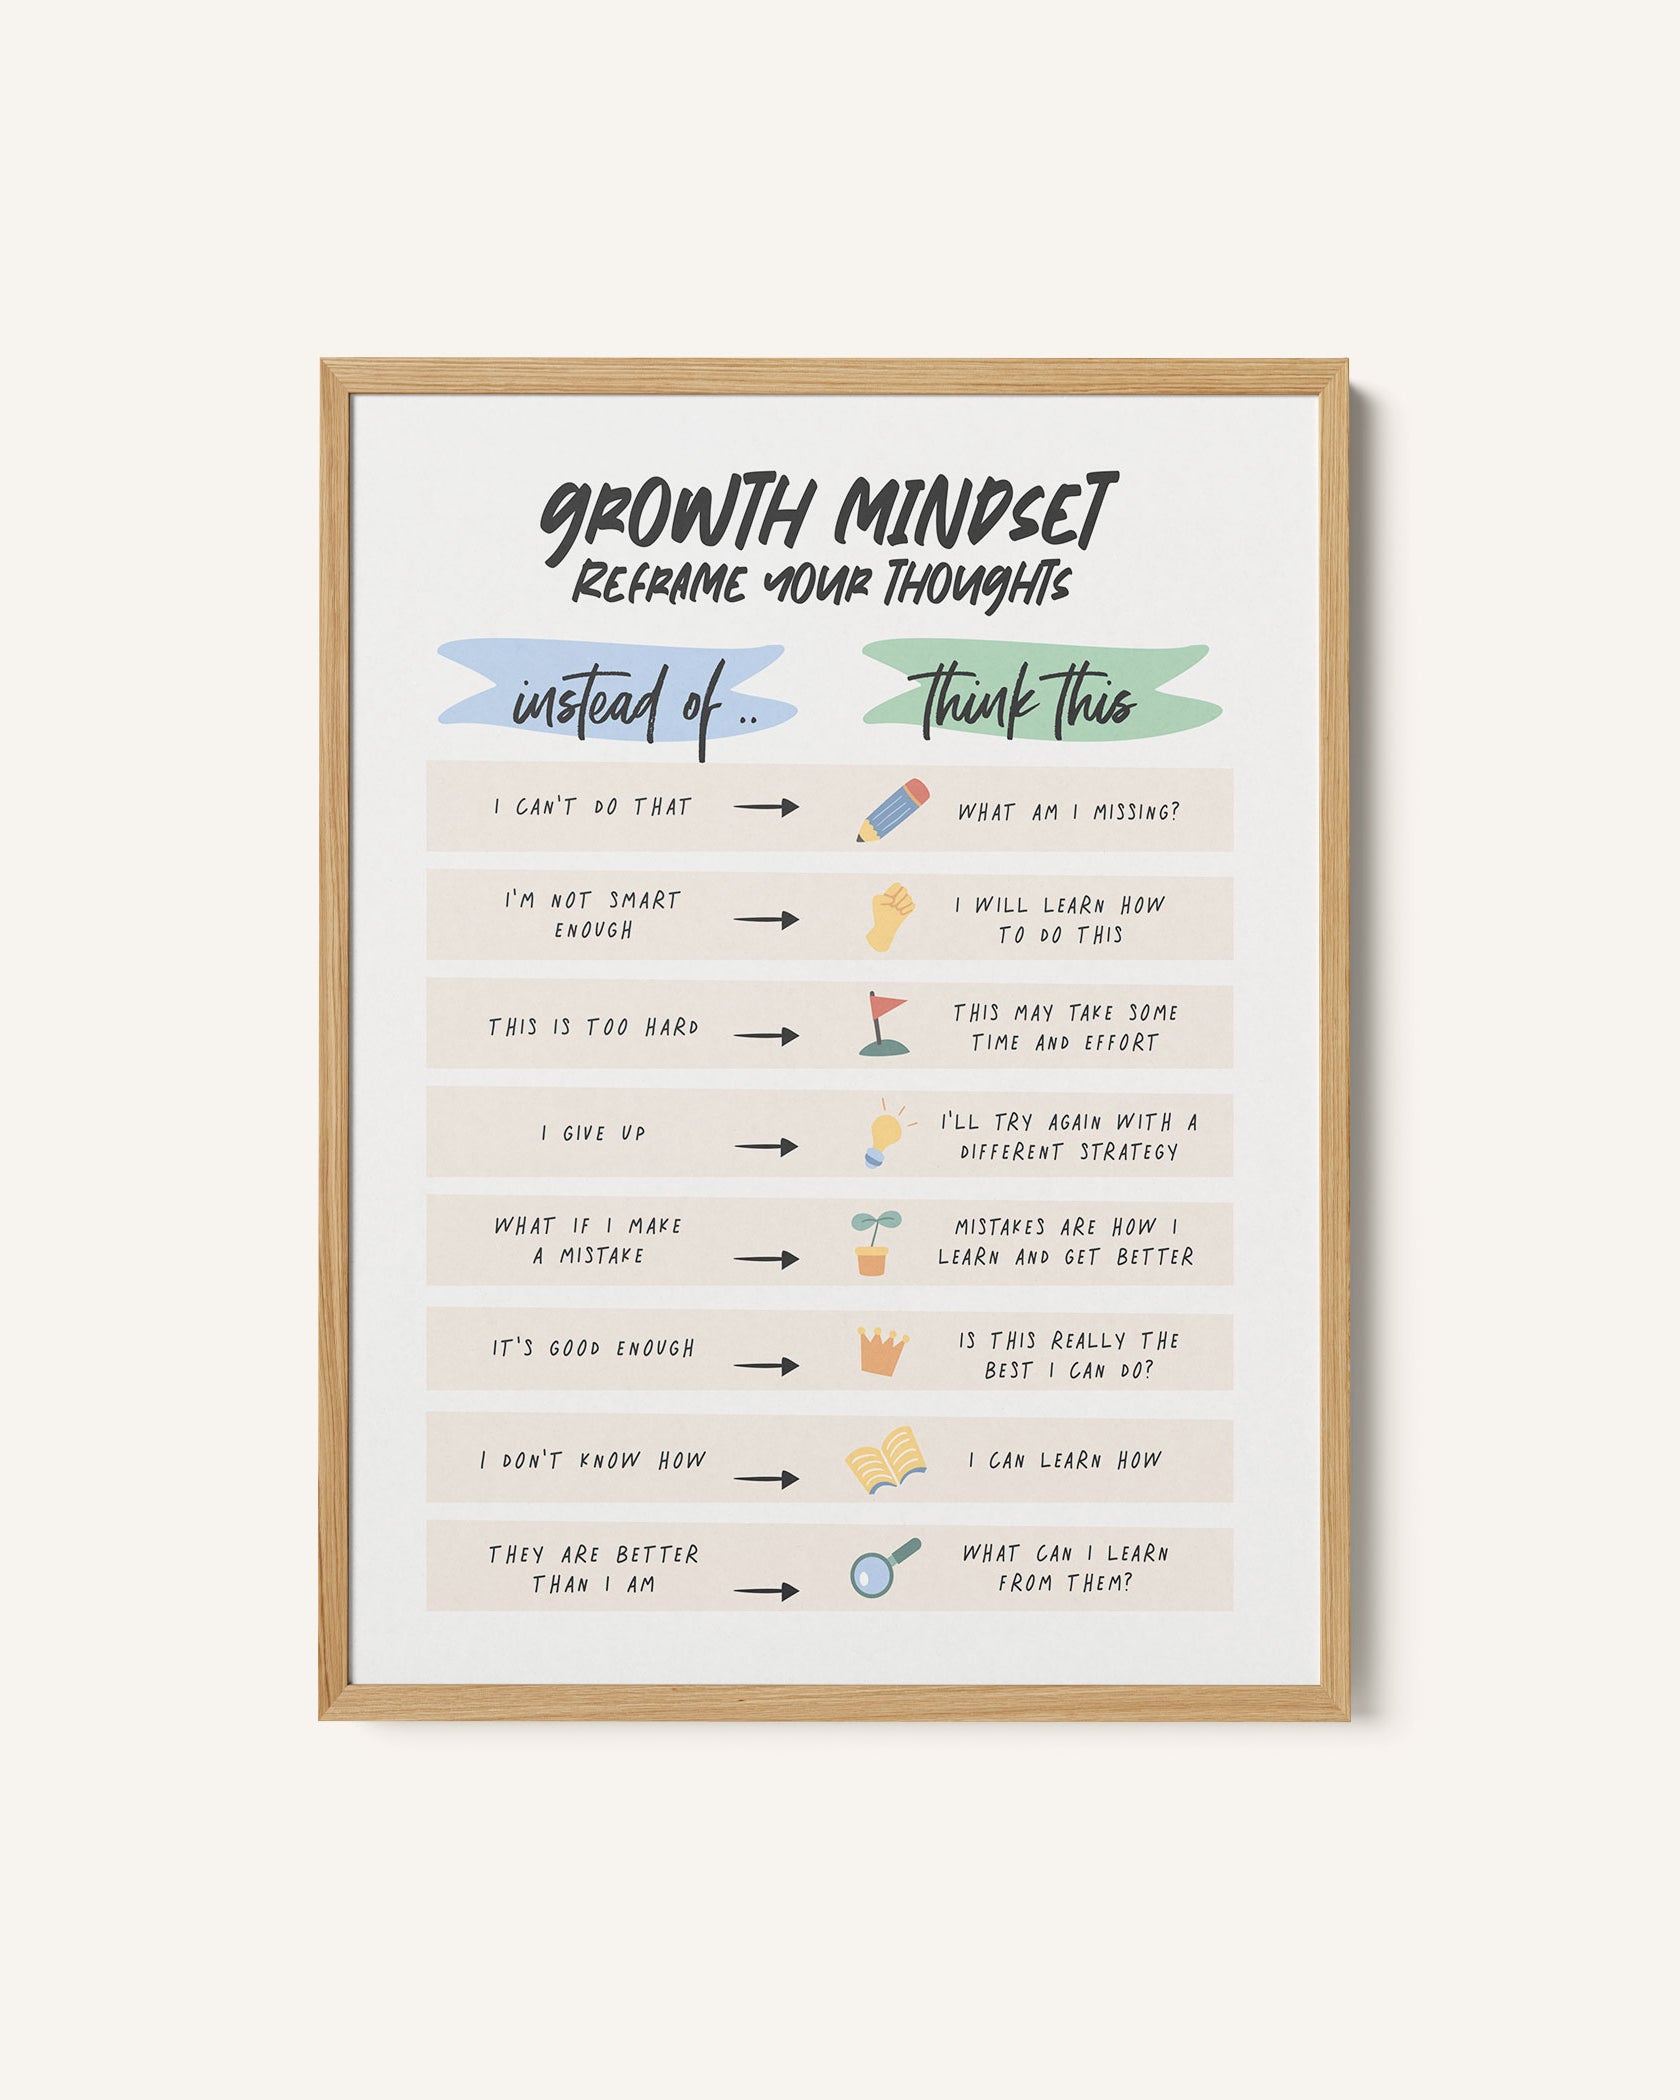 GROWTH MINDSET
REFRAME YOUR THOUGHTS
instead of ..
think this
I CAN'T DO THAT
WHAT AM I MISSING?
I'M NOT SMART
ENOUGH
I WILL LEARN HOW
TO DO THIS
THIS IS TOO HARD
THIS MAY TAKE SOME
TIME AND EFFORT
I GIVE UP
I'LL TRY AGAIN WITH A
DIFFERENT STRATEGY
WHAT IF I MAKE
A MISTAKE
MISTAKES ARE HOW I
LEARN AND GET BETTER
IT'S GOOD ENOUGH
IS THIS REALLY THE
BEST I CAN DO?
I DON'T KNOW HOW
I CAN LEARN HOW
THEY ARE BETTER
THAN I AM
WHAT CAN I LEARN
FROM THEM?